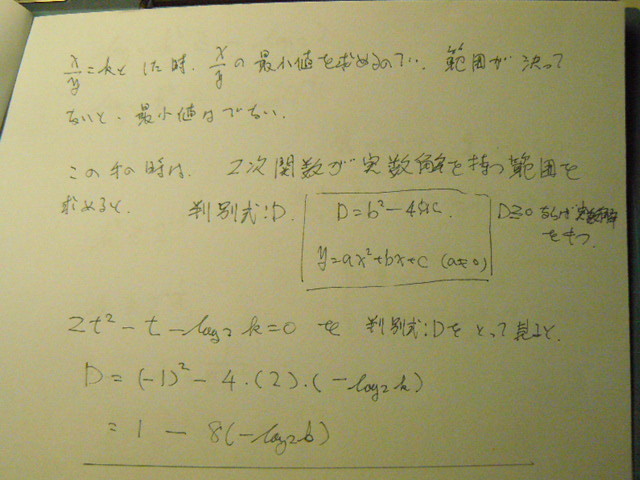 x/y=kとした時、x/yの最小値を求めるので、範囲が決って
ないと、最小値はでない。
この手の時は、2次関数が実数解を持つ範囲を
求めると、判別式:D.
D=b²-4ac.
y=ax²+bx+c (a≠0)
D≧0 ならば実数解
をもつ.
2t²-t-log₂k=0 を 判別式:Dをとって見ると、
D=(-1)²-4・(2)・(-log₂k)
=1-8(-log₂k)